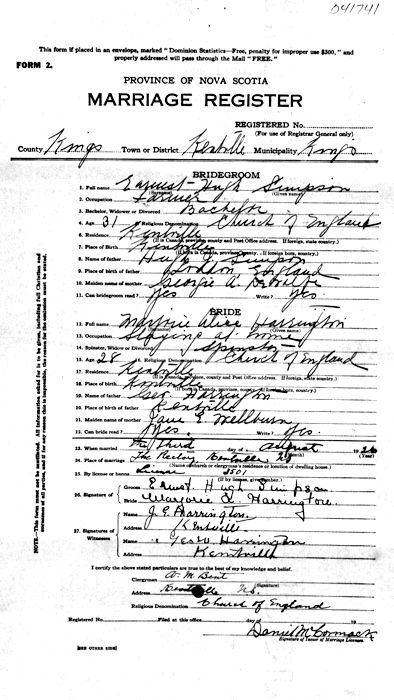 041741
This form if placed in an envelope, marked "Dominion Statistics—Free, penalty for improper use $300," and
properly addressed will pass through the Mail "FREE."
FORM 2.
PROVINCE OF NOVA SCOTIA
MARRIAGE REGISTER
REGISTERED No.
(For use of Registrar General only)
County Kings Town or District Kentville Municipality Kings
BRIDEGROOM
1. Full name Earnest Hugh Simpson
(Surname) (Given names)
2. Occupation Farmer
3. Bachelor, Widower or Divorced Bachelor
4. Age 31 5. Religious Denomination Church of England
6. Residence Kentville
(If in Canada, province, county and Post Office address. If foreign, state country.)
7. Place of Birth Kentville
(If in Canada, province, county. If foreign born, country.)
8. Name of father Hugh Simpson
9. Place of birth of father London England
10. Maiden name of mother Georgie A.
11. Can bridegroom read? Yes Write? Yes.
BRIDE
12. Full name Marjorie Alice Harrington
(Surname) (Given names)
13. Occupation Staying at home
14. Spinster, Widow or Divorced Spinster
15. Age 28 16. Religious Denomination Church of England
17. Residence Kentville
(If in Canada, province, county and Post Office address. If foreign, state country.)
18. Place of birth Kentville
(If in Canada, province, county. If foreign born, country.)
19. Name of father Geo. Harrington
20. Place of birth of father Kentville
21. Maiden name of mother Jane E Wellburn
22. Can bride read? Yes. Write? Yes.
23. When married the third day of August 1926
(Year)
24. Place of marriage The Rectory, Kentville, NS
(Name of church or clergyman's residence or location of dwelling house.)
25. By license or banns License 3501
(If by license, give number.)
26. Signature of Groom Ernest Hugh Simpson
Bride Marjorie A. Harrington
27. Signatures of Witnesses
Name J. E. Harrington
Address Kentville
Name Harrington
Address Kentville
I certify the above stated particulars are true to the best of my knowledge and belief.
Clergyman A. M. Bent
(Signature)
Address Kentville NS.
Religious Denomination Church of England
Registered No. Filed at this office day of 19
Daniel McCormack
Signature of Issuer of Marriage Licenses.
(SEE OTHER SIDE)
NOTE—This form must not be mutilated. All information asked for is to be given, including full Christian and
surnames of all parties, and if for any reason this is impossible, the reason for the omission must be stated.